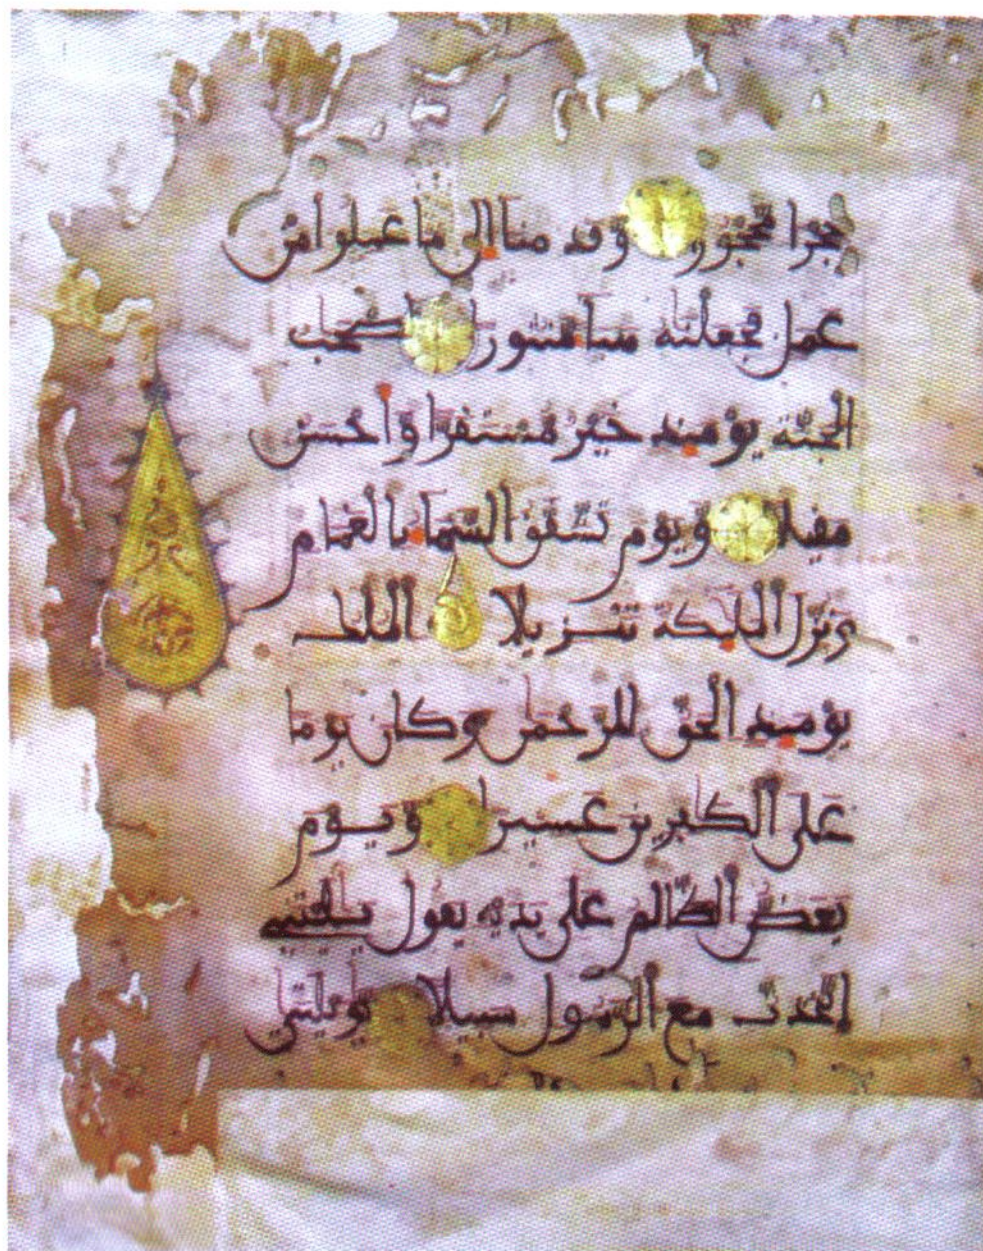 حجرا محجورا وقدمنا إلى ما عملوا من
عمل فجعلنه هباء منثورا أصحب
الجنة يومئذ خير مستقرا وأحسن
مقيلا ويوم تشقق السماء بالغمام
ونزل الملئكة تنزيلا الملك
يومئذ الحق للرحمن وكان يوما
على الكفرين عسيرا ويوم
يعض الظالم على يديه يقول يليتني
اتخذت مع الرسول سبيلا يويلتى